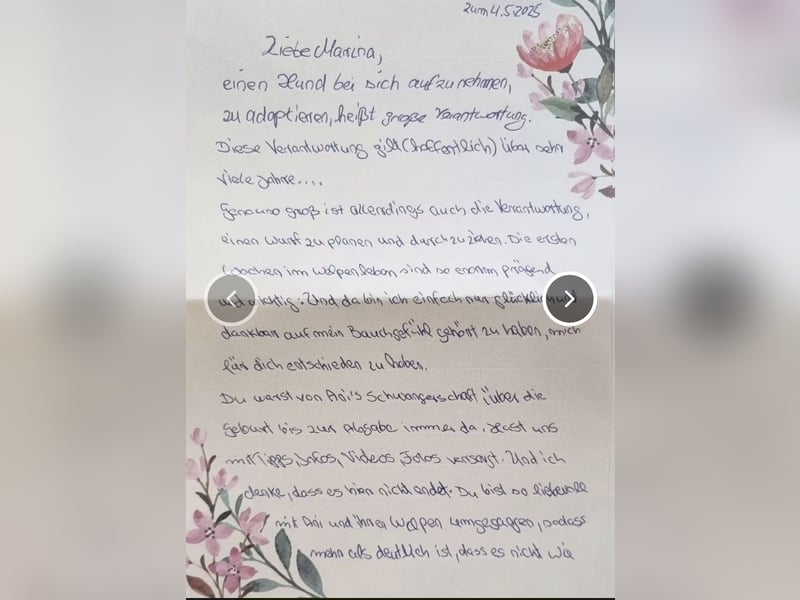 zum 4.5.2025
Liebe Marina,
einen Hund bei sich aufzunehmen,
zu adoptieren, heißt große Verantwortung.
Diese Verantwortung gilt (hoffentlich) über sehr
viele Jahre....
Genauso groß ist allerdings auch die Verantwortung,
einen Wurf zu planen und durchzuziehen. Die ersten
Wochen im Welpenleben sind so enorm prägend
und wichtig. Und da bin ich einfach nur glücklich und
dankbar auf mein Bauchgefühl gehört zu haben, mich
für dich entschieden zu haben.
Du warst von Ani's Schwangerschaft, über die
Geburt bis zur Abgabe immer da. Hast uns
mit Tipps, Infos, Videos, Fotos versorgt. Und ich
denke, dass es hier nicht endet. Du bist so liebevoll
mit Ani und ihren Welpen umgegangen, sodass
mehr als deutlich ist, dass es nicht